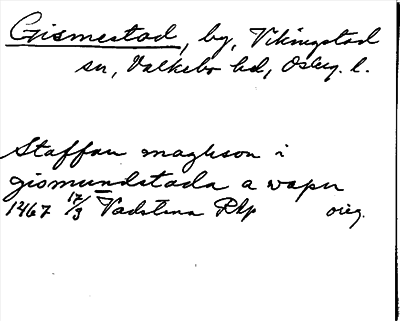 Gismestad, by, Vikingstad
sn, Valkebo hd, Östg. l.
Staffan magnson i
gismundstada a wapn
1467 17/3 Vadstena Rkp orig.